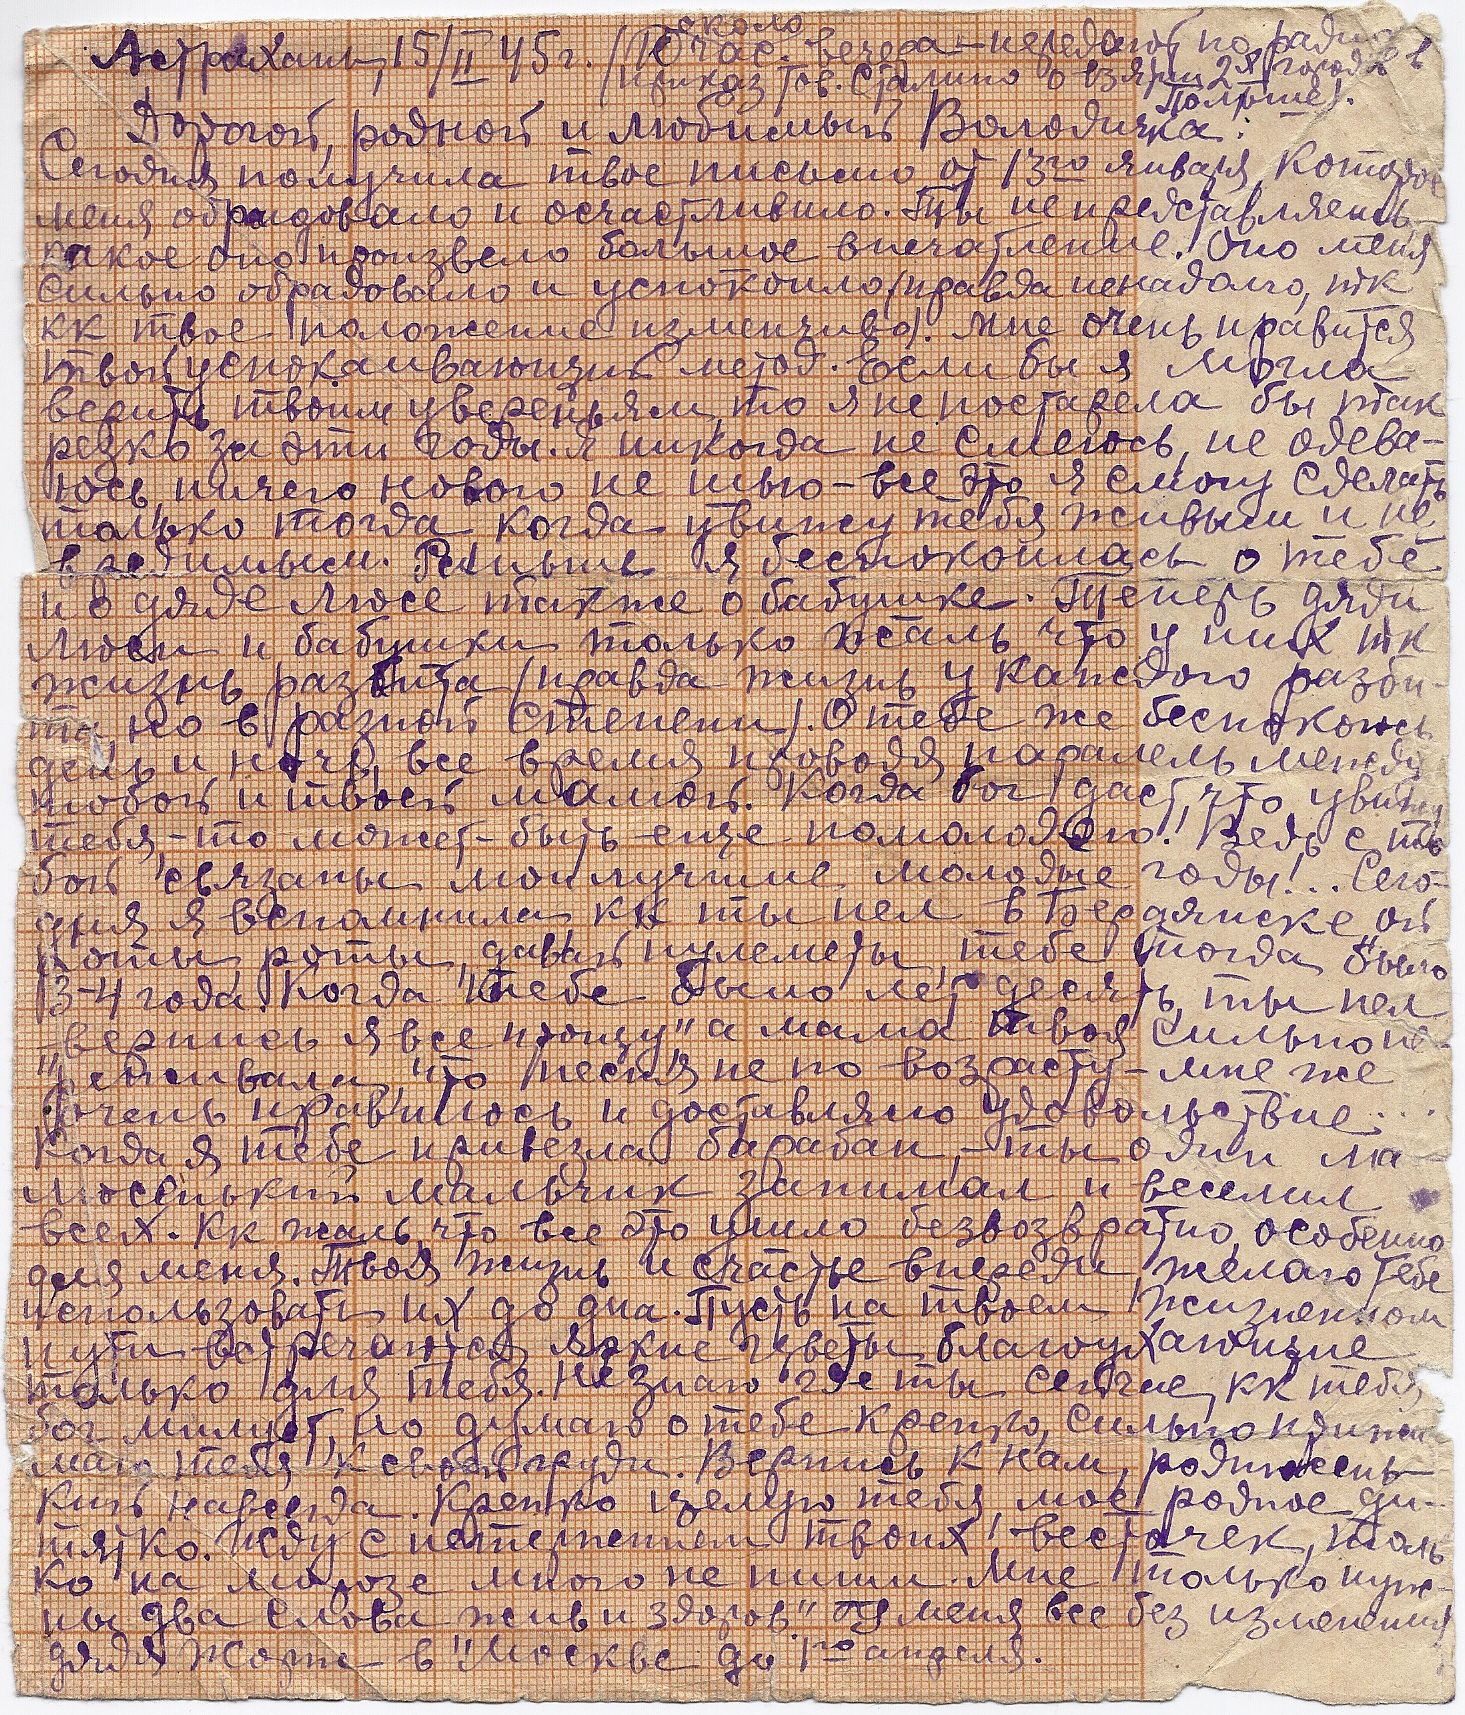 Астрахань, 15/II 45 г. /около 10 час. вечера – передают по радио
/приказ тов. Сталина о взятии 2х городов в
Польше/.
Дорогой, родной и любимый Володичка!
Сегодня получила твое письмо от 13го января, которое
меня обрадовало и осчастливило. Ты не представляешь,
какое оно произвело большое впечатление. Оно меня
сильно обрадовало и успокоило /правда ненадолго, тк
кк твое положение изменчиво/. Мне очень нравится
твой успокаивающий метод. Если бы я могла
верить твоим увереньям, то я не постарела бы так
резко за эти годы. Я никогда не смеюсь, не одева-
юсь, ничего нового не шью – все это я смогу сделать
только тогда когда увижу тебя живым и не
вредимым. Раньше я беспокоилась о тебе
и о дяде Люсе также о бабушке. Теперь дяди
Люси и бабушки только жаль что у них тк
жизнь разбита /правда жизнь у каждого разби-
та, но в разной степени/. О тебе же беспокоюсь
день и ночь, все время проводя паралель между
тобой и твоей мамой. Когда бог даст, что увижу
тебя, – то может-быть еще помолодею! Ведь с то
бой связаны мои лучшие молодые годы!... Сего-
дня я вспомнила, кк ты пел в Бердянске „ой
роты роты, давай пулеметы", тебе тогда было
3-4 года. Когда тебе было лет десять, ты пел
„вернись я все прощу" а мама твоя сильно пе-
реживала, что песня не по возрасту – мне же
очень нравилось и доставляло удовольствие...
Когда я тебе привезла барабан, – ты один ма-
люсенький мальчик занимал и веселил
всех. Кк жаль, что все это ушло безвозвратно, особенно
для меня. Твоя жизнь и счастье впереди, желаю тебе
использовать их до дна. Пусть на твоем жизненном
пути встречаются яркие цветы благоухающие
только для тебя. Не знаю где ты сейчас, кк тебя
бог милует, но думаю о тебе крепко, сильно прижи-
маю тебя к своей груди. Вернись к нам, родной
навсегда. Крепко целую тебя, мое родное ди-
тятко. Жду с нетерпением твоих весточек, толь
ко на морозе много не пиши. Мне только нуж-
ны два слова „жив и здоров." У меня все без изменения
дядя Жорж – в Москве до 1го апреля.